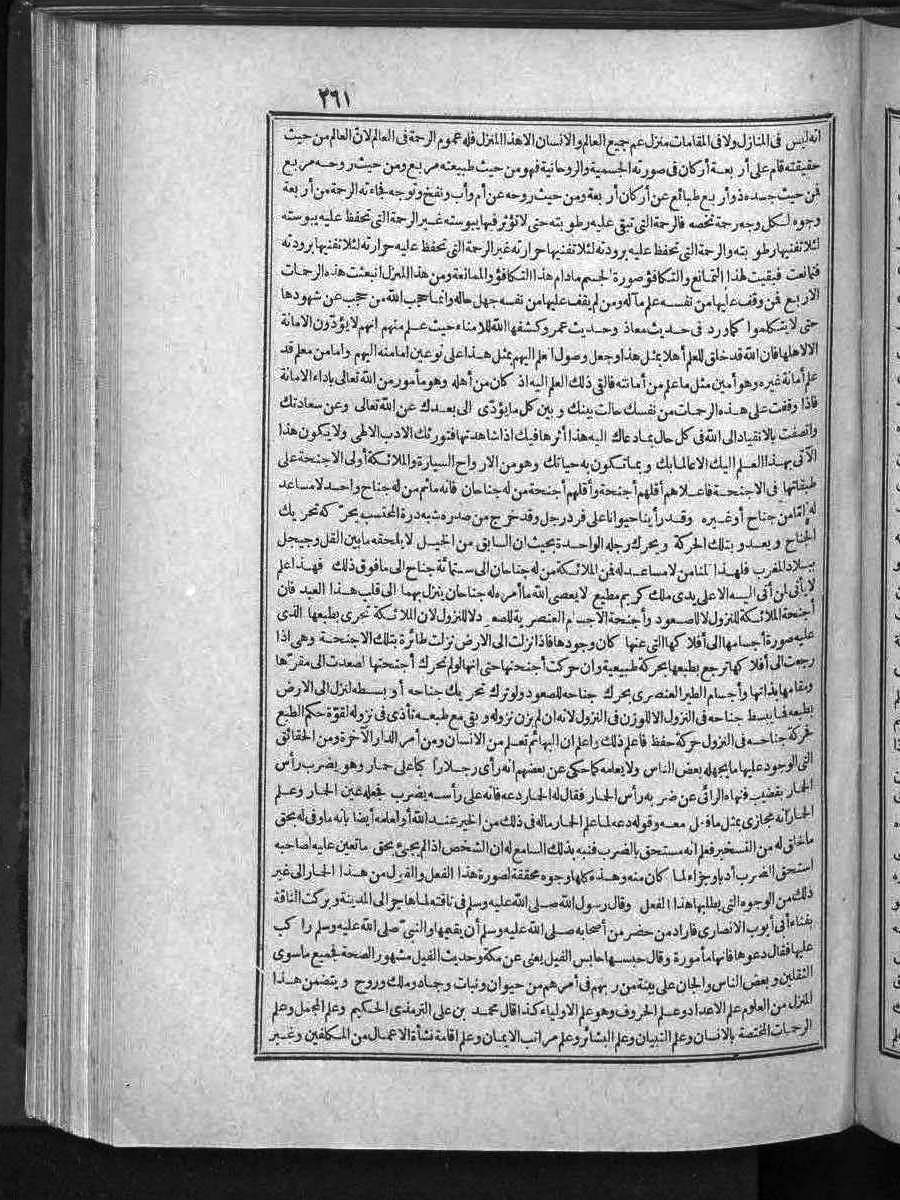 ٢٦١
انه ليس فى المنازل ولا فى المقامات منزل عم جميع العالم والانسان الا هذا المنزل فله عموم الرحمة فى العالم لان العالم من حيث
حقيقته قام على أربعة أركان فى صورته الجسمية والروحانية فهو من حيث طبيعته مربع ومن حيث روحه مربع
فن حيث جسده ذو أربع طبائع عن أركان أربعة ومن حيث روحه عن أم وأب ونفخ وتوجه فجاءته الرحمة من أربعة
وجوه لكل وجه رحمة تخصه فالرحمة التى تبقى عليه رطوبته حتى لا تؤثر فيها يبوسته غير الرحمة التى تحفظ عليه يبوسته
لئلا تفنيها رطوبته والرحمة التى تحفظ عليه برودته لئلا تفنيها حرارته غير الرحمة التى تحفظ عليه حرارته لئلا تفنيها برودته
فتمانعت فبقيت لهذا التمانع والتكافؤ صورة الجسم مادام هذا التكافؤ والممانعة ومن هذا المنزل انبعثت هذه الرحمات
الاربع فمن وقف عليها من نفسه علم ماله ومن لم يقف عليها من نفسه جهل حاله وانما حجب الله من حجب عن شهودها
حتى لا يتكلموا كما ورد فى حديث معاذ وحديث عمر وكشفها الله للامناء حيث علم منهم انهم لا يؤدّون الامانة
الا لاهلها فان الله قد خلق للعلم أهلا بمثل هذا وجعل وصول أعلم اليهم بمثل هذا على نوعين اما منه اليهم واما من معلم قد
علم أمانة غيره وهو أمين مثل ما علم من أمانته فالقى ذلك العلم اليه اذ كان من أهله وهو مأمور من الله تعالى باداء الامانة
فاذا وقفت على هذه الرحمات من نفسك حالت بينك وبين كل ما يؤدّى الى بعدك عن الله تعالى وعن سعادتك
واتصفت بالانقياد الى الله فى كل حال بما دعاك اليه هذا أثرها فيك اذا شاهدتها فتورثك الادب الالهى ولا يكون هذا
الآتى بهذا العلم اليك الا عالما بك وبما تكون به حياتك وهو من الارواح السيارة والملائكة أولى الاجنحة على
طبقاتها فى الاجنحة فاعلاهم أقلهم أجنحة وأقلهم أجنحة من له جناحان فانه ما ثم من له جناح واحد لا مساعد
له امّا من جناح أو غيره وقد رأينا حيوانا على فرد رجل وقد خرج من صدره شبه درة المحتسب يحرّكه تحريك
الجناح ويعدو بتلك الحركة ويحرك رجله الواحدة بحيث ان السابق من الخيل لا يلحقه ما بين القل وجيجل
ببلاد المغرب فلهذا قلنا من لا مساعد له فمن الملائكة من له جناحان الى ستمائة جناح الى ما فوق ذلك فهذا علم
لا يأتى لمن أتى اليه الا على يدى ملك كريم مطيع لا يعصى الله ما أمره له جناحان ينزل بهما الى قلب هذا العبد فان
أجنحة الملائكة للنزول لا للصعود وأجنحة الاجسام العنصرية للصعود لا للنزول لان الملائكة تجرى بطبعها الذى
عليه صورة أجسامها الى أفلاكها التى عنها كان وجودها فاذا نزلت الى الارض نزلت طائرة بتلك الاجنحة وهى اذا
رجعت الى أفلاكها ترجع بطبعها بحركة طبيعية وان حركت أجنحتها حتى انها ولو لم تحرك أجنحتها لصعدت الى مقرّها
ومقامها بذاتها وأجسام الطير العنصرى بحرك جناحه للصعود ولو ترك تحريك جناحه أو بسطه لنزل الى الارض
بطبعه فما يبسط جناحه فى النزول الا للوزن فى النزول لانه ان لم يزن نزوله وبقى مع طبعه تأذى فى نزوله لقوّة حكم الطبع
فحركة جناحه فى النزول حركة حفظ فاعلم ذلك واعلم ان البهائم تعلم من الانسان ومن أمر الدار الآخرة ومن الحقائق
التى الوجود عليها ما يجهله بعض الناس ولا يعلمه كما حكى عن بعضهم انه رأى رجلا راكبا على حمار وهو يضرب رأس
الحمار بقضيب فنهاه الرائى عن ضربه رأس الحمار فقال له الحمار دعه فانه على رأسه يضرب فجعله عين الحمار وعلم
الحمار أنه مجازى بمثل ما فعل معه وقوله دعه لما علم الحمار ماله فى ذلك من الخير عند الله أو لعلمه أيضا بانه ما وفى له بحق
ما خلق له من التسخير فعلم انه مستحق بالضرب فنبه بذلك السامع له ان الشخص اذا لم يجئ بحق ما تعين عليه لصاحبه
استحق الضرب أدبا وجزاء لما كان منه وهذه كلها وجوه محققة لصورة هذا الفعل والقول من هذا الحمار الى غير
ذلك من الوجوه التى يطلبها هذا الفعل وقال رسول الله صلى الله عليه وسلم فى ناقته لما هاجر الى المدينة وبركت الناقة
بفناء أبى أيوب الانصارى فاراد من حضر من أصحابه صلى الله عليه وسلم أن يقيمها والنبىّ صلى الله عليه وسلم راكب
عليها فقال دعوها فانها مأمورة وقال حبسها حابس الفيل يعنى عن مكة وحديث الفيل مشهور الصحة فجميع ماسوى
الثقلين وبعض الناس والجان على بينة من ربهم فى أمرهم من حيوان ونبات وجماد وملك وروح ويتضمن هذا
المنزل من العلوم علم الاعداد وعلم الحروف وهو علم الاولياء كذا قال محمد بن على الترمذى الحكيم وعلم المجمل وعلم
الرحمات المختصة بالانسان وعلم التبيان وعلم البشائر وعلم مراتب الايمان وعلم اقامة نشأة الاعمال من المكلفين وغير